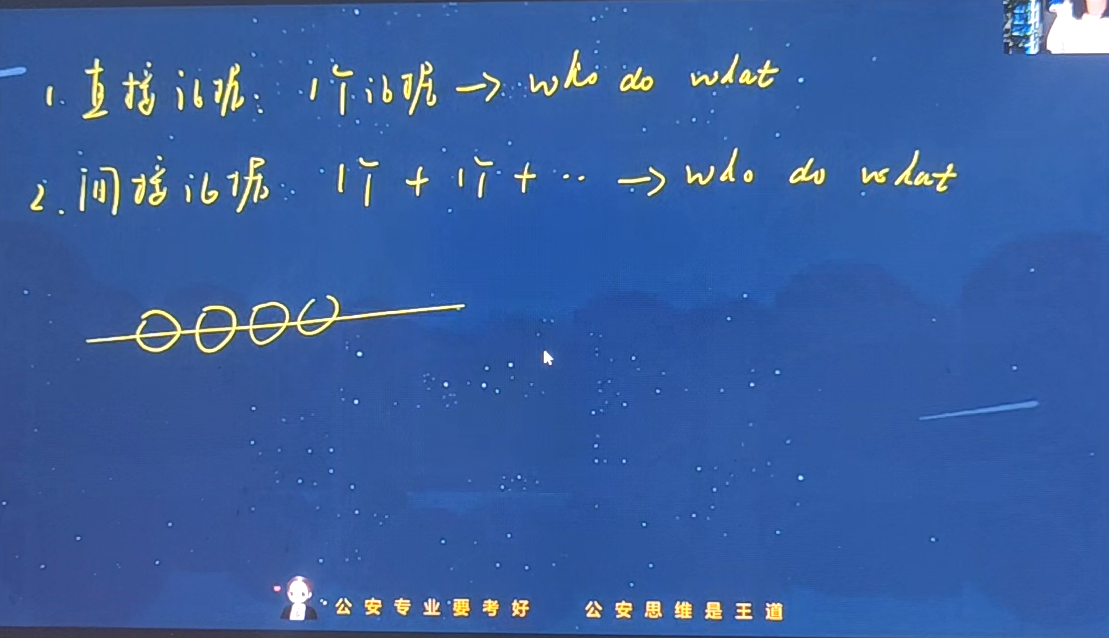 1. 直接证据: 1个证据 → who do what.
2. 间接证据: 1个 + 1个 + ·· → who do what
公安专业要考好 公安思维是王道